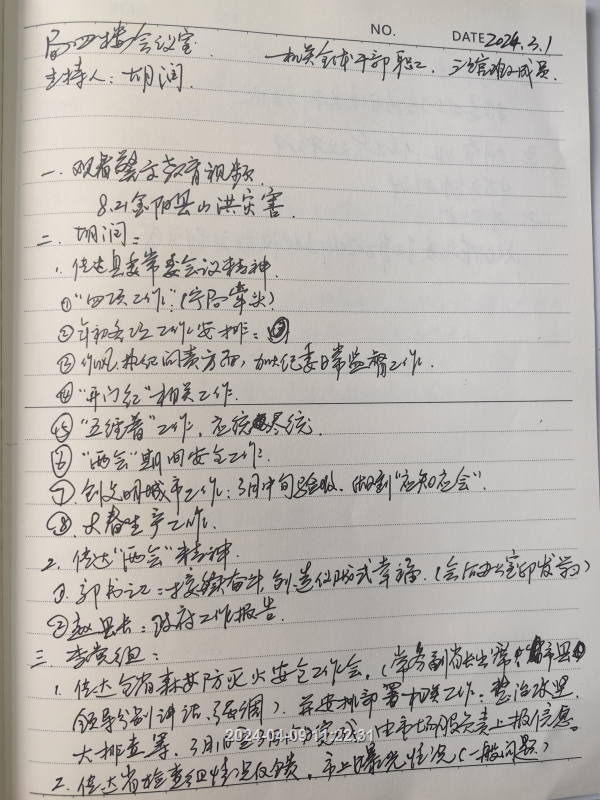 NO. DATE 2024.3.1
局四楼会议室. 机关全体干部职工、三馆班子成员.
主持人：胡润.
一. 观看警示教育视频.
8.21金阳县山洪灾害.
二. 胡润：
1. 传达县委常委会议精神.
①“四项工作”：(牵头)
②年初各项工作安排：
③作风、执纪问责方面，加大纪委日常监督工作.
④“开门红”相关工作.
⑤“五经普”工作，应统尽统.
⑥“两会”期间安全工作：
⑦创文明城市工作：3月中旬验收、做到“应知应会”.
⑧大春生产工作.
2. 传达“两会”精神.
①郭书记：接续奋斗，创造仪陇式幸福.(会后办公室印发学习)
②赵县长：政府工作报告.
三 李党组：
1. 传达全省森林防灭火安全工作会.(常务副省长出席、市县
领导分别讲话、强调). 并安排部署相关工作：整治改进.
大排查等. 3月 完成. 由市场股负责上报信息.
2. 传达省检查组情况反馈. 市上曝光情况(一般问题)
2024-04-09 11:22:31